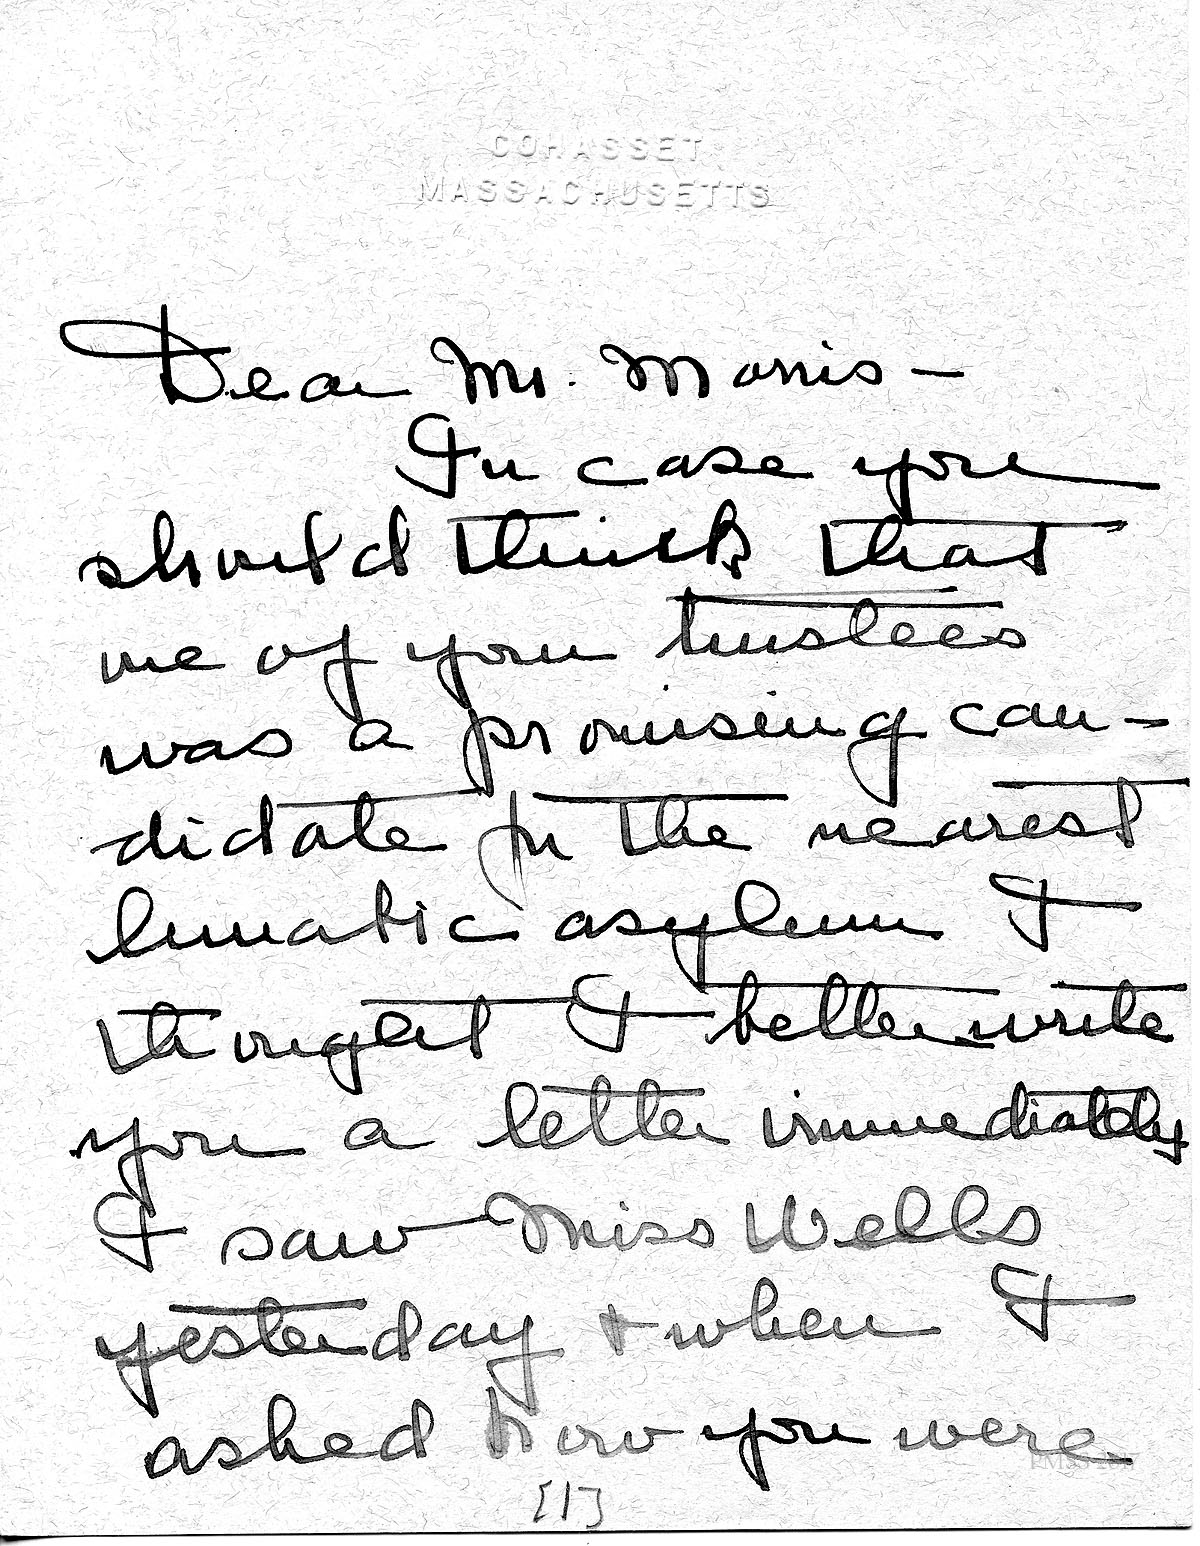 COHASSET
MASSACHUSETTS
Dear Mr. Morris —
In case you
should think that
one of your trustees
was a promising can-
didate for the nearest
lunatic asylum I
thought I better write
you a letter immediately
I saw Miss Wells
yesterday + when I
asked how you were
[1]